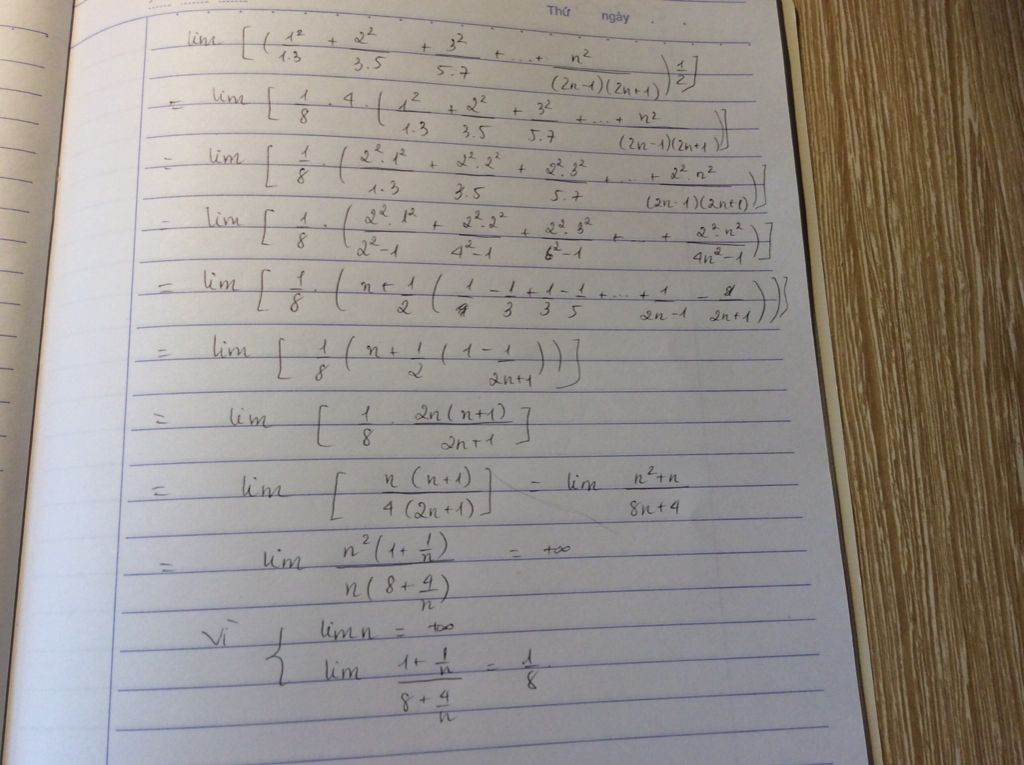 Thứ ngày . .
lim [ ( 1²/1.3 + 2²/3.5 + 3²/5.7 + ... + n²/(2n-1)(2n+1) ) 1/2 ]
= lim [ 1/8 . 4 . ( 1²/1.3 + 2²/3.5 + 3²/5.7 + ... + n²/(2n-1)(2n+1) ) ]
= lim [ 1/8 . ( 2².1²/1.3 + 2².2²/3.5 + 2².3²/5.7 + ... + 2².n²/(2n-1)(2n+1) ) ]
= lim [ 1/8 . ( 2².1²/2²-1 + 2².2²/4²-1 + 2².3²/6²-1 + ... + 2².n²/4n²-1 ) ]
= lim [ 1/8 . ( n + 1/2 ( 1/1 - 1/3 + 1/3 - 1/5 + ... + 1/2n-1 - 1/2n+1 ) ) ]
= lim [ 1/8 ( n + 1/2 ( 1 - 1/2n+1 ) ) ]
= lim [ 1/8 . 2n(n+1)/2n+1 ]
= lim [ n(n+1)/4(2n+1) ] = lim n²+n/8n+4
= lim n²(1+1/n)/n(8+4/n) = +∞
Vì { lim n = +∞
lim 1+1/n/8+4/n = 1/8